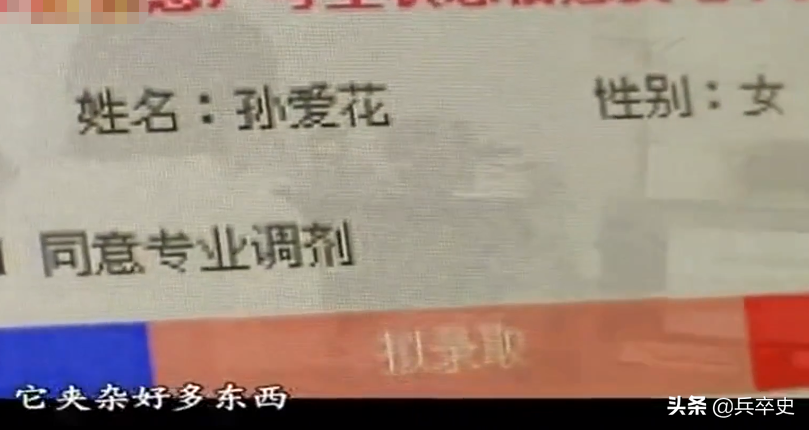 姓名：孙爱花 性别：女
同意专业调剂
拟录取
它夹杂好多东西
头条 @兵卒史